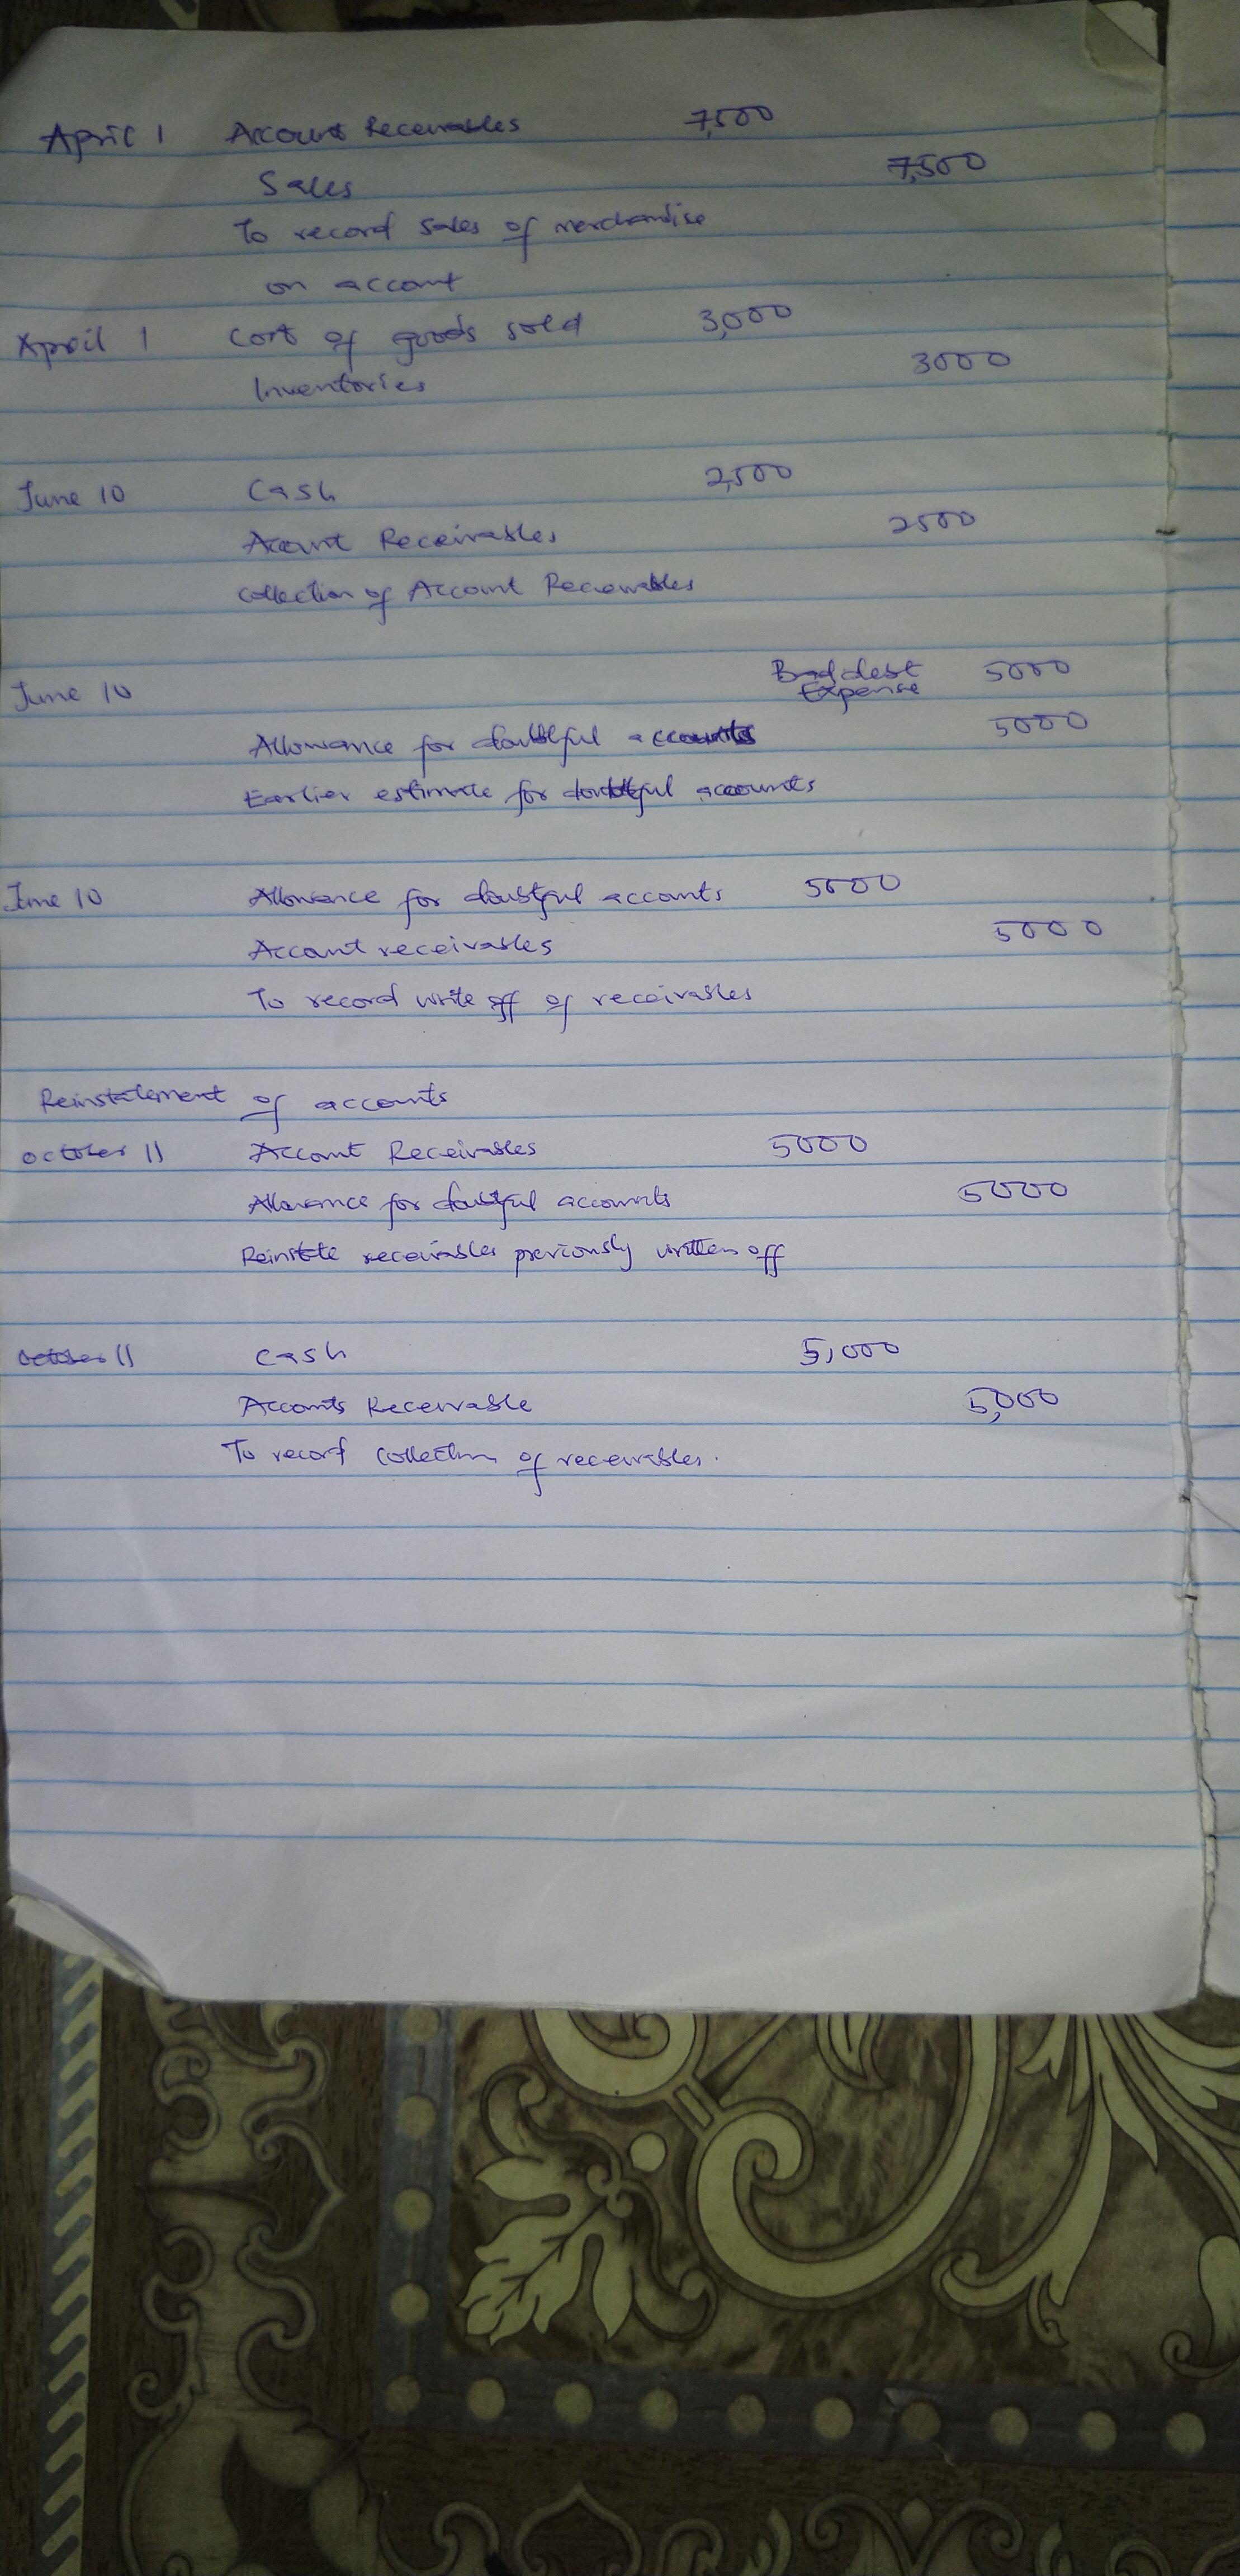 April 1 Account Receivables 7,500
Sales 7,500
To record sales of merchandise
on account
April 1 Cost of goods sold 3,000
Inventories 3000
June 10 Cash 2,500
Account Receivables 2500
collection of Account Receivables
June 10 Bad debt Expense 5000
Allowance for doubtful accounts 5000
Earlier estimate for doubtful accounts
June 10 Allowance for doubtful accounts 5000
Account receivables 5000
To record write off of receivables
Reinstatement of accounts
october 11 Account Receivables 5000
Allowance for doubtful accounts 5000
Reinstate receivables previously written off
october 11 Cash 5,000
Accounts Receivable 5,000
To record collection of receivables.